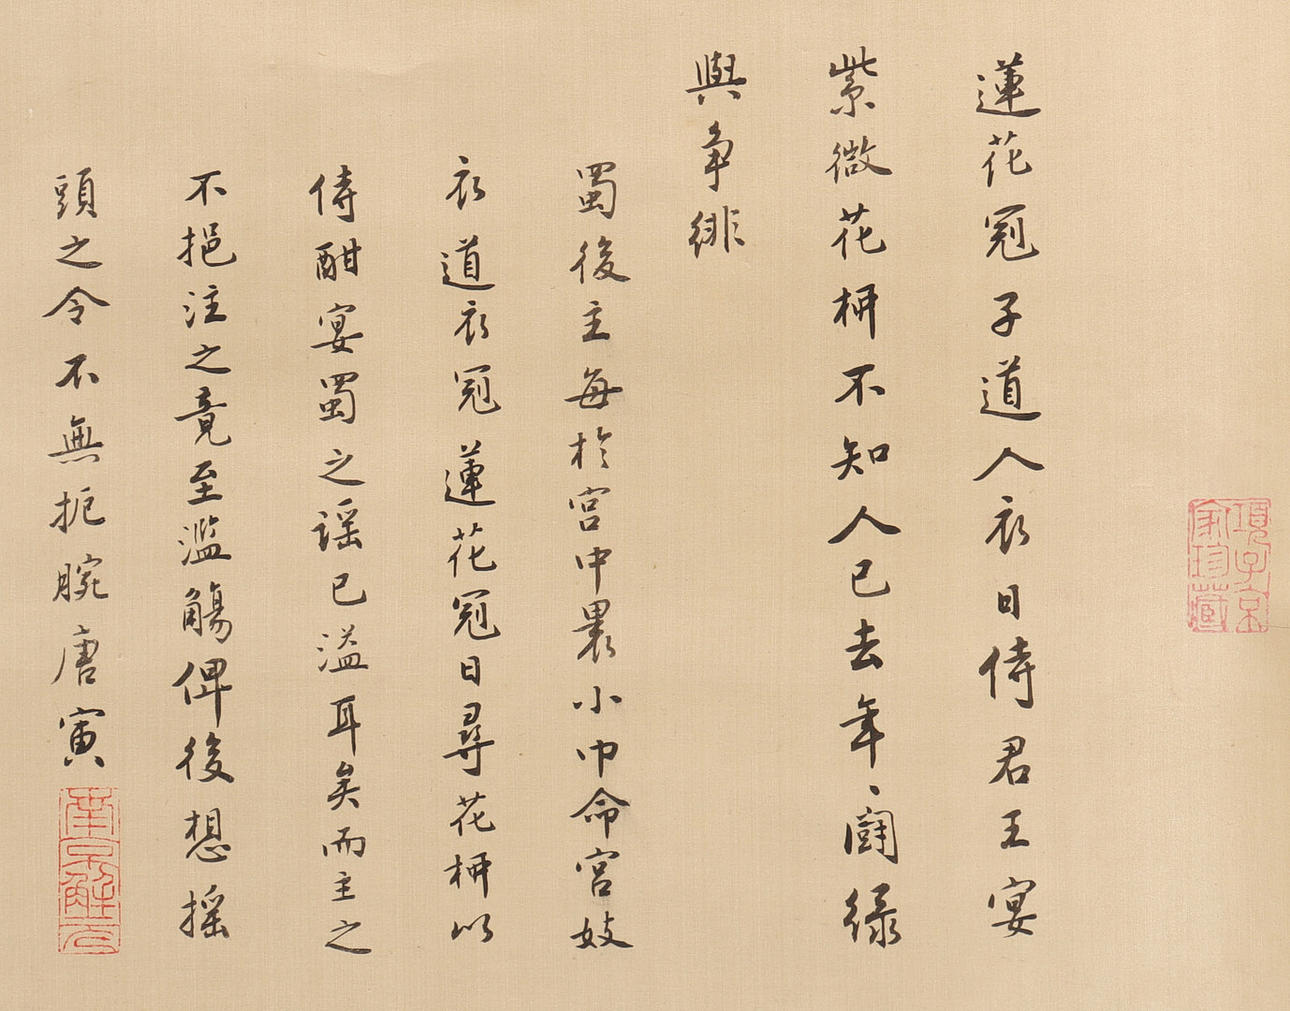 項子京
家珍藏
蓮花冠子道人衣日侍君王宴
紫微花柳不知人已去年〻鬪綠
與爭緋
蜀後主每於宮中裹小巾命宮妓
衣道衣冠蓮花冠日尋花柳以
侍酣宴蜀之謡已溢耳矣而主之
不挹注之竟至濫觴俾後想摇
頭之令不無扼腕唐寅
南京解元